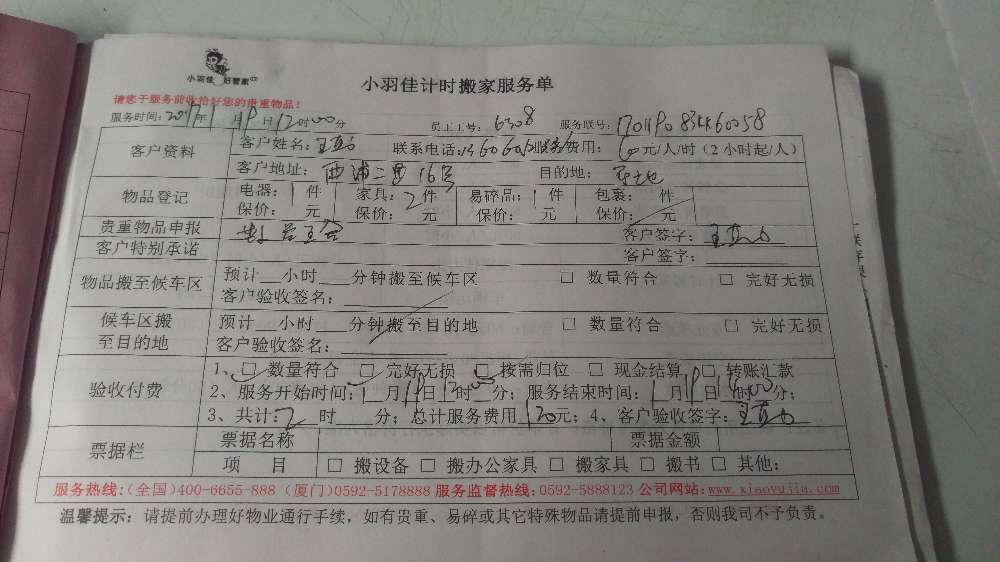 小羽佳 好管家
小羽佳计时搬家服务单
请您于服务前收拾好您的贵重物品！
服务时间：2017年1月19日12时00分 员工工号：6308 服务联号：
客户资料 客户姓名： 联系电话： 服务费用：60元/人/时（2小时起/人）
客户地址：西浦二里16号 目的地：
物品登记 电器：1件 家具：2件 易碎品：1件 包裹： 件
保价： 元 保价： 元 保价： 元 保价： 元
贵重物品申报 客户签字：
客户特别承诺 客户签字：
物品搬至候车区 预计 小时 分钟搬至候车区 □ 数量符合 □ 完好无损
客户验收签名：
候车区搬至目的地 预计 小时 分钟搬至目的地 □ 数量符合 □ 完好无损
客户验收签名：
验收付费 1、□ 数量符合 □ 完好无损 □ 按需归位 □ 现金结算 □ 转账汇款
2、服务开始时间：1月19日12时00分；服务结束时间：1月19日14时00分；
3、共计：2时 分；总计服务费用120元；4、客户验收签字：
票据栏 票据名称 票据金额
项 目 □ 搬设备 □ 搬办公家具 □ 搬家具 □ 搬书 □ 其他：
服务热线：(全国)400-6655-888 (厦门)0592-5178888 服务监督热线：0592-5888123 公司网站：www.xiaoyujia.com
温馨提示：请提前办理好物业通行手续，如有贵重、易碎或其它特殊物品请提前申报，否则我司不予负责。